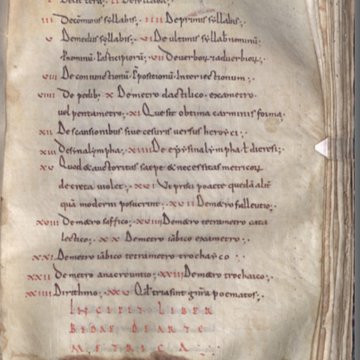 De littera · II De syllaba ·
III De communibus syllabis · IIII De primis syllabis ·
V De mediis syllabis · VI De ultimis syllabis nominū
Pronominū Participiorū · VII De uerboꝝ & aduerbioꝝ
VIII De coniunctionū Ppositionū Interiectionum ·
VIIII De pedib; X De metro dactilico exametro
uel pentametro · XI Que sit obtima carminis forma ·
XII De scansionibus siue cesuris uersus heroyci ·
XIII De sinalympha · XIIII De episynalympha ł dieresi ·
XV Quod & auctoritas saepe & necessitas metricoꝝ
decreta uiolet · XVI Ut prisci poaetę quedā alit̄
quā moderni posuerint · XVII De metro falleutio ·
XVIII De metro saffico · XVIIII De metro tetrametro cata
lectico · XX De metro iābico exametro ·
XXI De metro iābico tetrametro trochaico
XXII De metro anacreuntio · XXIII De metro trochaico ·
XXIIII De rithmo · XXV Qđ tria sint genera poematos ·
INCIPIT LIBER
BEDAE DE ARTE
METRICA